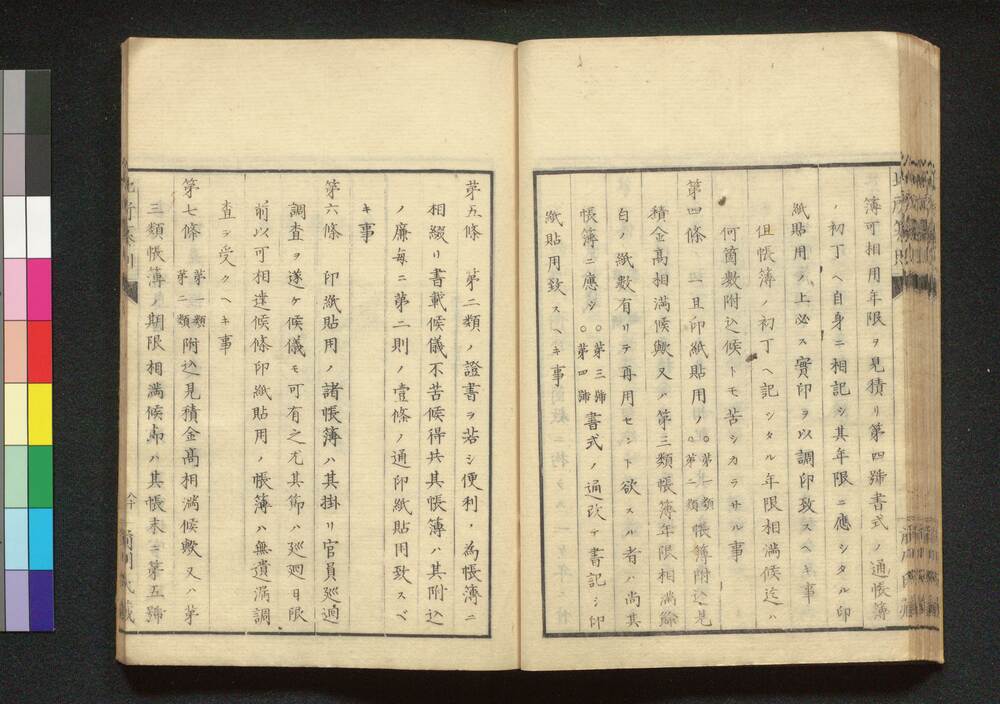 簿可相用年限ヲ見積リ第四號書式ノ通帳簿
ノ初丁ヘ自身ニ相記シ其年限ニ應シタル印
紙貼用ノ上必ス實印ヲ以調印致スヘキ事
但帳簿ノ初丁ヘ記シタル年限相満候迄ハ
何箇數附込候トモ苦シカラサル事
第四條 一旦印紙貼用ノ○第一類○第二類帳簿附込見
積金高相満候歟又ハ第三類帳簿年限相満餘
白ノ紙數有リテ再用セント欲スル者ハ尚其
帳簿ニ應シ○第三號○第四號書式ノ通改テ書記シ印
紙貼用致スヘキ事
第五條 第二類ノ證書ヲ若シ便利ノ為帳簿ニ
相綴リ書載候儀不苦候得共其帳簿ハ其附込
ノ廉毎ニ第二則ノ壹條ノ通印紙貼用致スベ
キ事
第六條 印紙貼用ノ諸帳簿ハ其掛リ官員廵廻
調査ヲ遂ケ候儀モ可有之尤其節ハ廵廻日限
前以可相達候條印紙貼用ノ帳簿ハ無遺漏調
査ヲ受クヘキ事
第七條 第一類第二類附込見積金高相満候歟又ハ第
三類帳簿ノ期限相満候節ハ其帳末ニ第五號